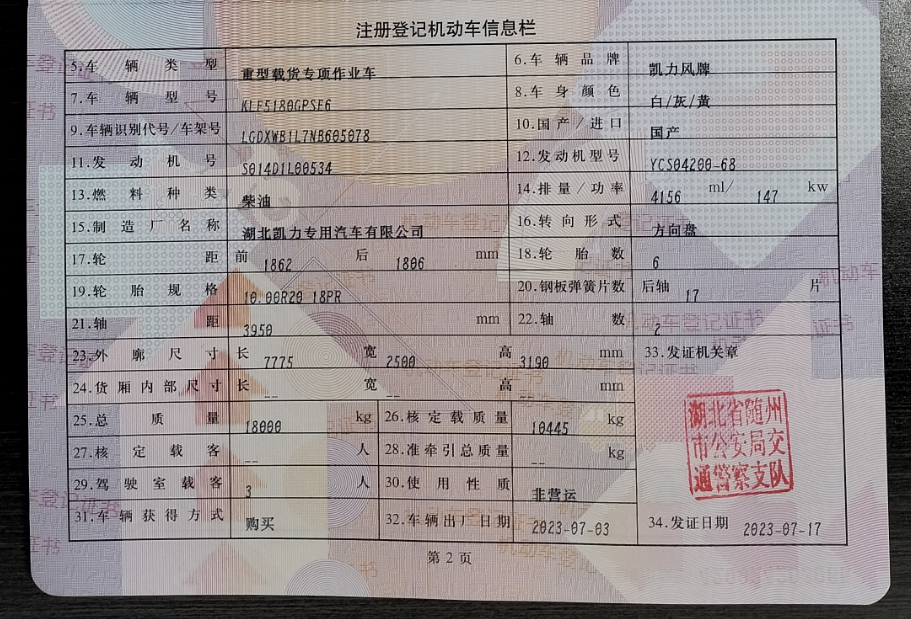 注册登记机动车信息栏
5.车辆类型 重型载货专项作业车 6.车辆品牌 凯力风牌
7.车辆型号 KLF5180GPSE6 8.车身颜色 白/灰/黄
9.车辆识别代号/车架号 LGDXWB1L7NB605078 10.国产/进口 国产
11.发动机号 S014D1L00534 12.发动机型号 YCS04200-68
13.燃料种类 柴油 14.排量/功率 4156 ml/ 147 kw
15.制造厂名称 湖北凯力专用汽车有限公司 16.转向形式 方向盘
17.轮距 前 1862 后 1806 mm 18.轮胎数 6
19.轮胎规格 10.00R20 18PR 20.钢板弹簧片数 后轴 17 片
21.轴距 3950 mm 22.轴数 2
23.外廓尺寸 长 7775 宽 2500 高 3190 mm 33.发证机关章
24.货厢内部尺寸 长 -- 宽 -- 高 -- mm
25.总质量 18000 kg 26.核定载质量 10445 kg
27.核定载客 -- 人 28.准牵引总质量 -- kg
29.驾驶室载客 3 人 30.使用性质 非营运
31.车辆获得方式 购买 32.车辆出厂日期 2023-07-03 34.发证日期 2023-07-17
湖北省随州
市公安局交
通警察支队
第2页